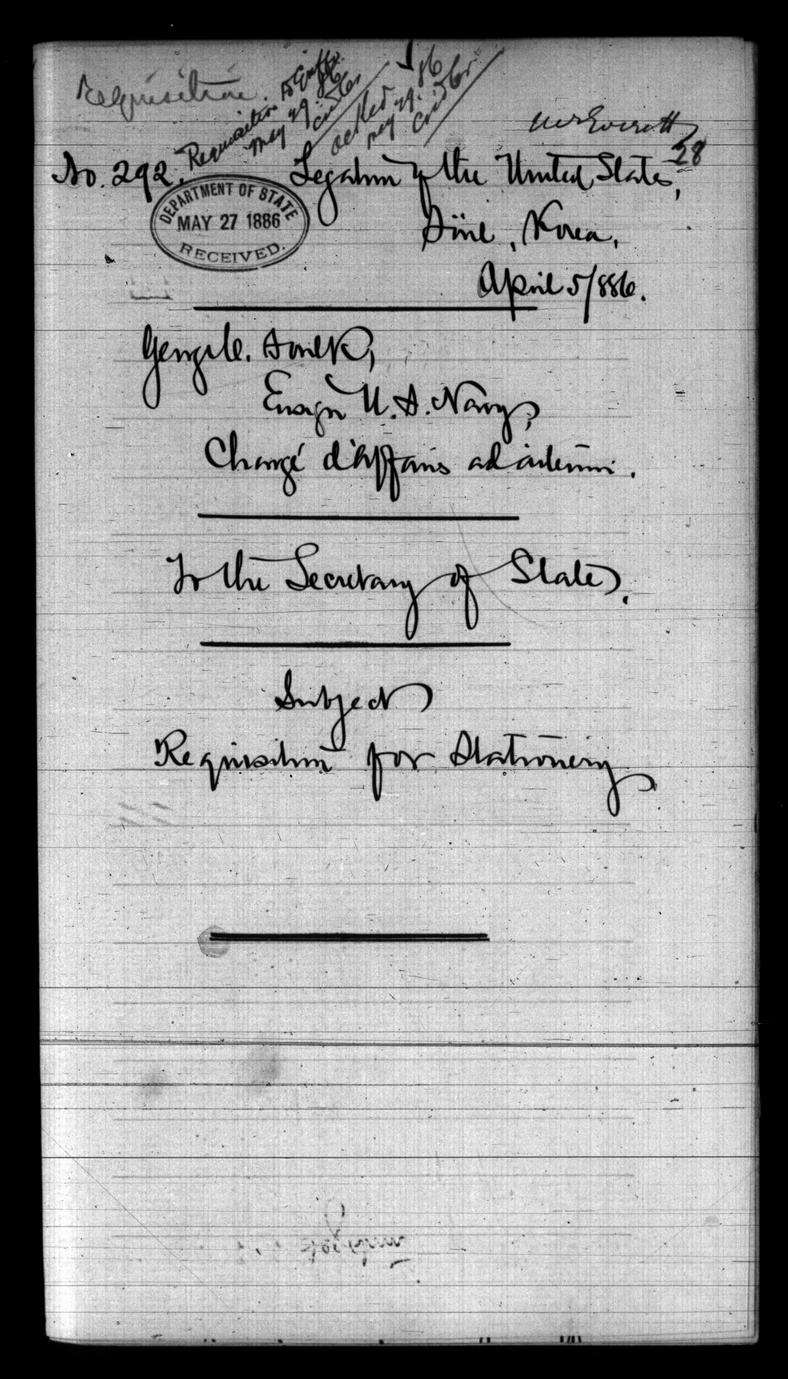 Requisition
Requisition
May 29. 86
acked
May 29. 86
Mr Everett
28
No. 292.
Legation of the United States,
Söul, Korea,
April 5/886.
DEPARTMENT OF STATE
MAY 27 1886
RECEIVED.
George C. Foulk,
Ensign U.S. Navy,
Chargé d'Affaires ad interim.
To the Secretary of State.
Subject
Requisition for Stationery